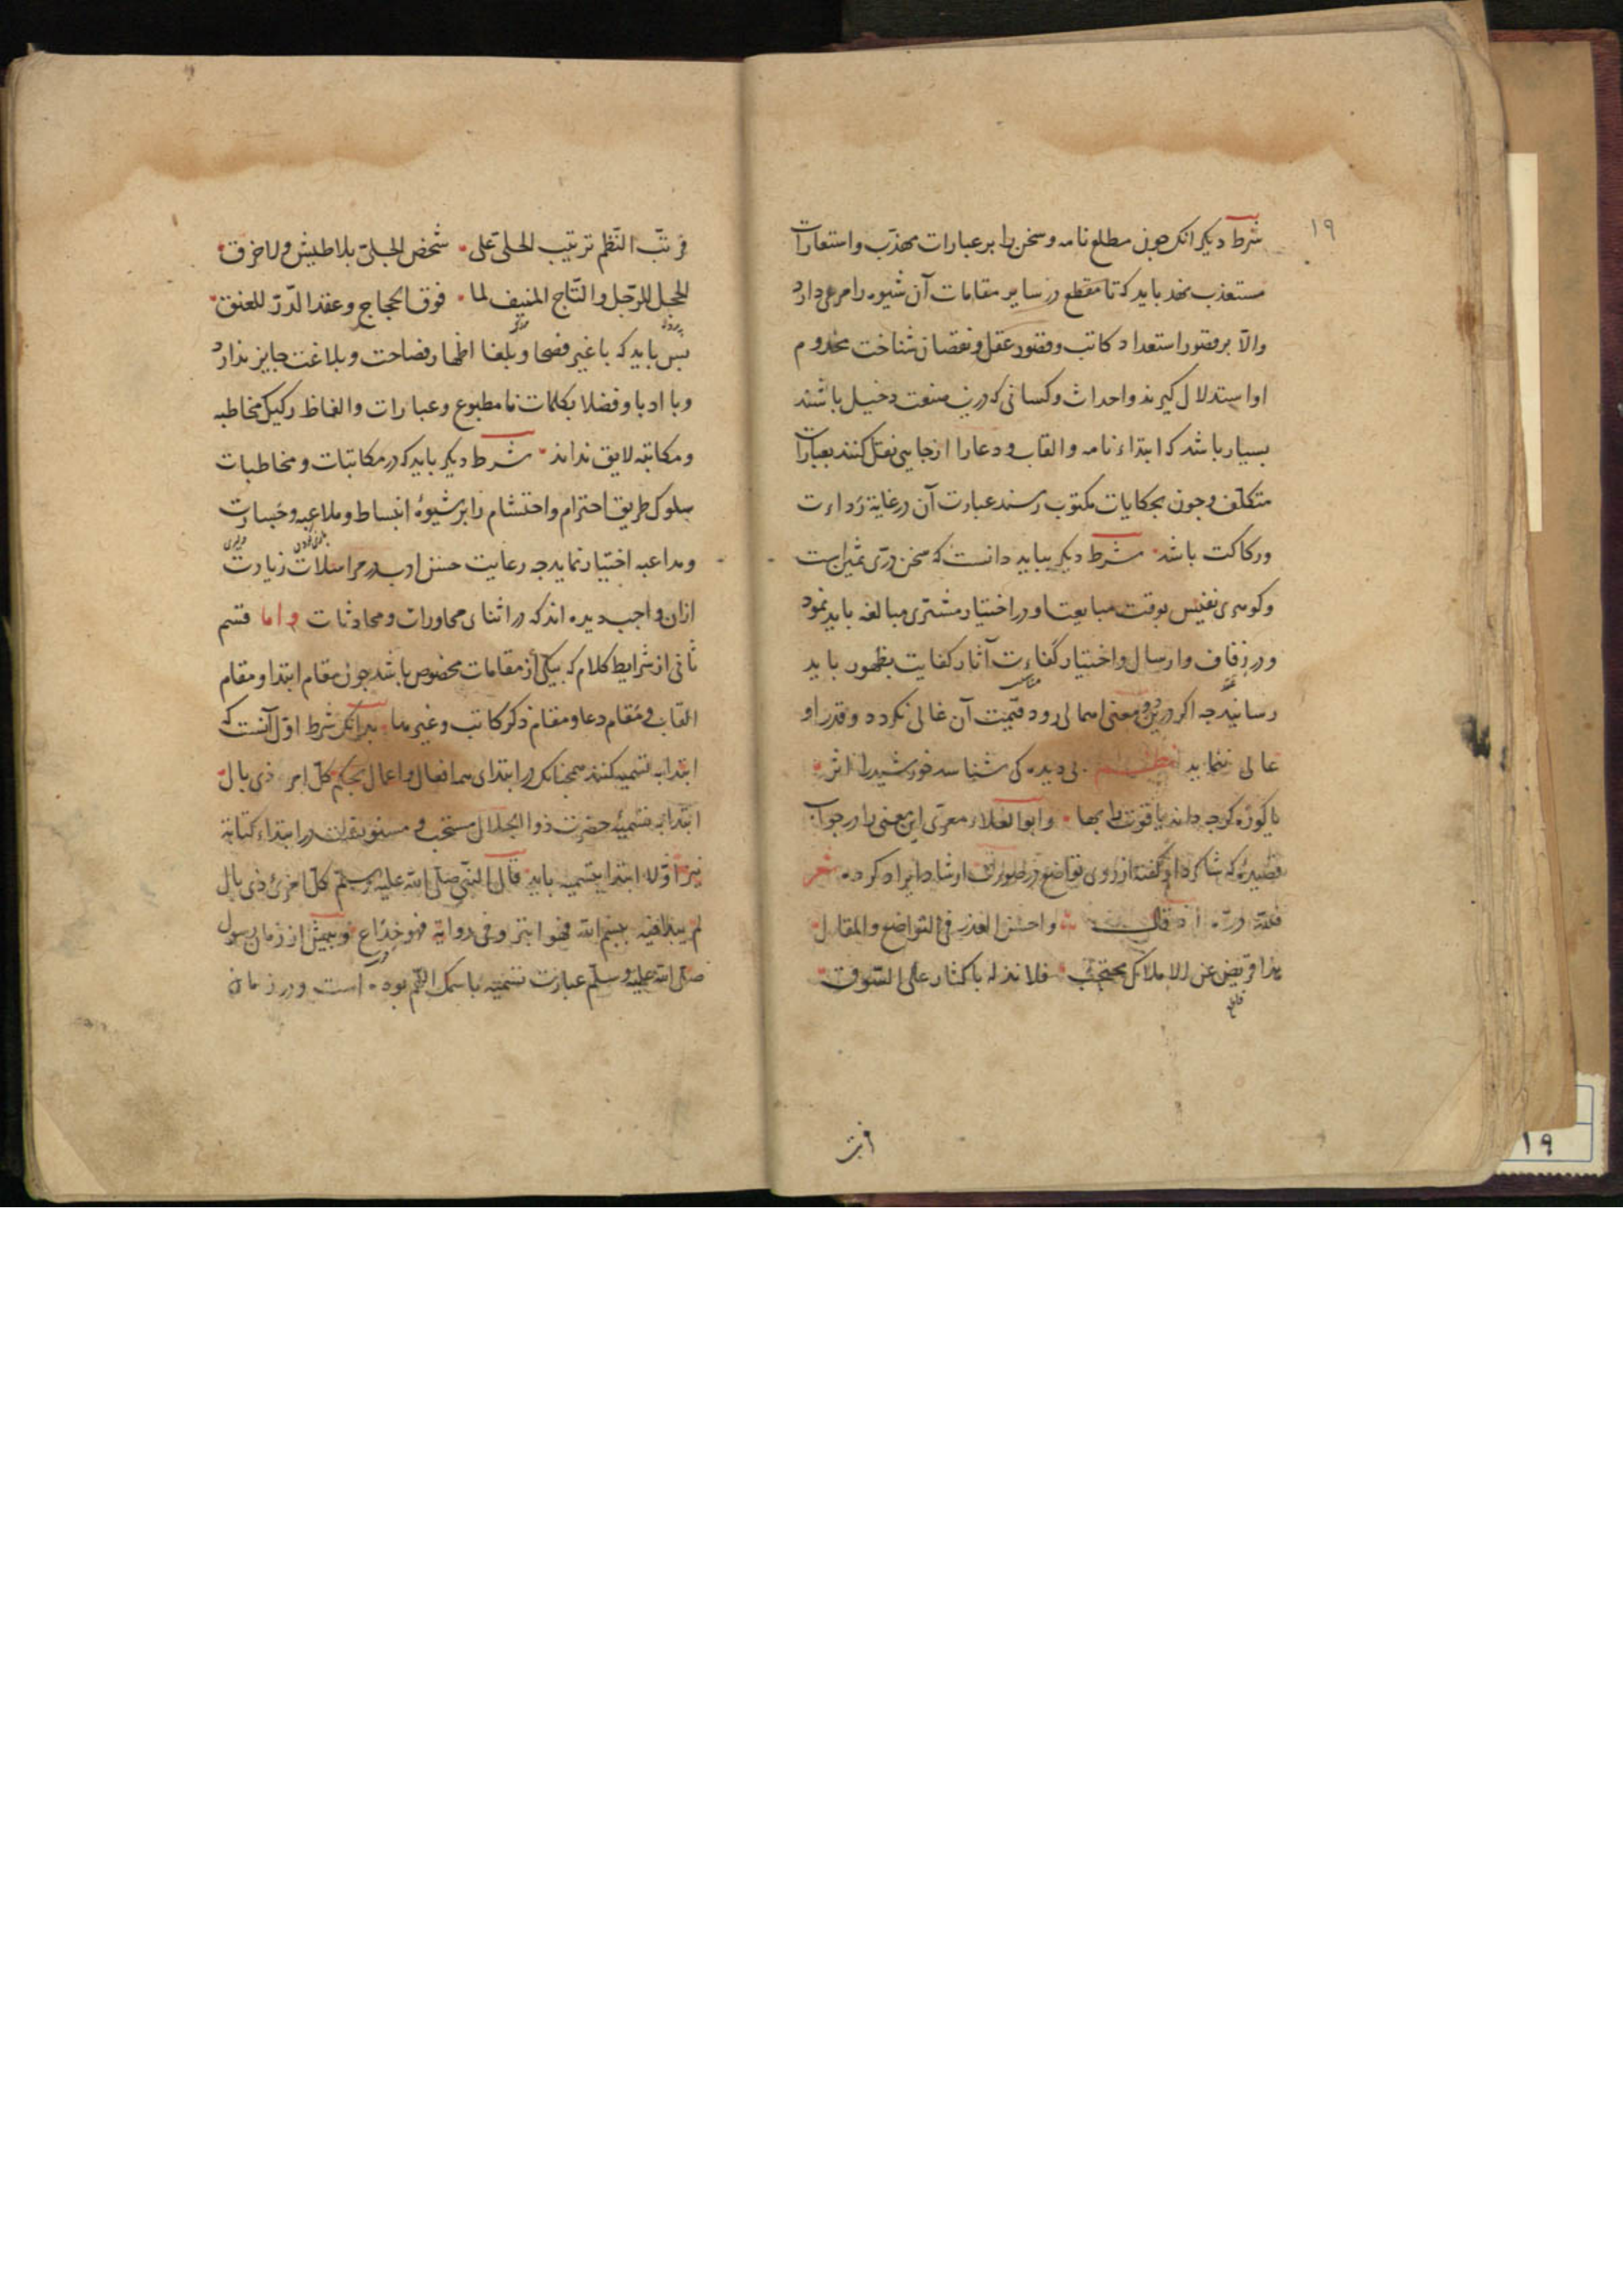 ۱۹
شرط دیکر آنکه جون مطلع نامه و سخن را بر عبارات مهذب و استعارات
مستعذب نهد باید که تا مقطع در سایر مقامات آن شیوه را مرعی دارد
والا بر قصور استعداد کاتب و فتور عقل و نقصان شناخت مخدوم
او استدلال کیرند و احداث و کسانی که درین صنعت دخیل باشند
بسیار باشد که ابتداء نامه و القاب و دعا را از جایی نقل کنند بعبارات
متکلف و جون بحکایات مکتوب رسند عبارت آن در غایة رداءت
و رکاکت باشد شرط دیکر بباید دانست که سخن دری ثمین است
و کوهری نفیس بوقت مبایعت او در اختیار مشتری مبالغه باید نمود
و در زفاف و ارسال و اختیار کفاءت آثار کفایت بظهور باید
رسانید جه اکر درین معنی اهمالی رود قیمت آن غالی نکردد و قدر او
عالی ننماید بی دیده کی شناسد خورشید را اثر
یا کوزه کر جه داند یاقوت را بها و ابو العلاء معری این معنی را در جواب
قصیده که شاکرد او کفته از روی تواضع در ارشاد ایراد کرده شعر
واحسن العذر فی التواضع والمقال
هذا قریض عن الاملاک محتجب فلا تذله باکثار علی السوق
فرتب النظم ترتیب الحلی علی شخص الجلی بلا طیش ولا خرق
للحجل للرجل والتاج المنیف لما فوق الحجاج وعقد الدر للعنق
بس باید که با غیر فصحا و بلغا اظهار فصاحت و بلاغت جایز ندارد
و با ادبا و فضلا بکلمات نامطبوع و عبارات و الفاظ رکیک مخاطبه
و مکاتبه لایق نداند شرط دیکر باید که در مکاتبات و مخاطبات
سلوک طریق احترام و احتشام را بر شیوۀ انبساط و ملاعبه و جسارت
و مداعبه اختیار نماید جه رعایت حسن ادب در مراسلات زیادت
ازان واجب دیده اند که در اثنای محاورات و محادثات و اما قسم
ثانی از شرایط کلام که بیکی از مقامات مخصوص باشد جون مقام ابتدا و مقام
القاب و مقام دعا و مقام ذکر کاتب و غیرها بدانکه شرط اول آنست که
ابتدا به تسمیه کنند همجنانکه در ابتدای همه افعال و اعمال بحکم کل امر ذی بال
ابتدا به تسمیه حضرت ذو الجلال مستحب و مسنونست در ابتداء کتابة
نیز اولا ابتدا بتسمیه باید قال النبی صلی الله علیه وسلم کل امرئ ذی بال
لم یبدا فیه ببسم الله فهو ابتر و فی روایة فهو جذاع و بیش از زمان رسول
صلی الله علیه وسلم عبارت تسمیه باسمک اللهم بوده است و در زمان